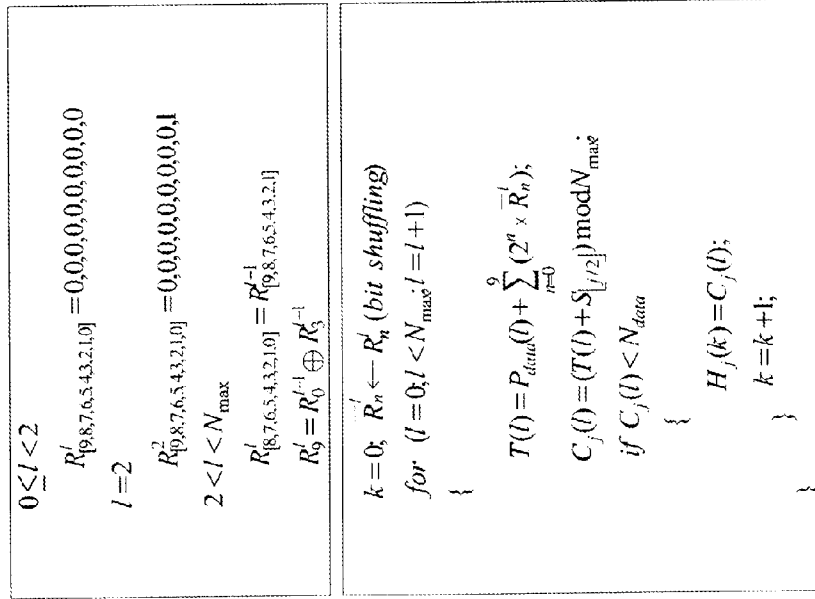 0≤l<2
R^l_[9,8,7,6,5,4,3,2,1,0] =0,0,0,0,0,0,0,0,0,0
l=2
R^2_[9,8,7,6,5,4,3,2,1,0] =0,0,0,0,0,0,0,0,0,1
2<l<N_max
R^l_[8,7,6,5,4,3,2,1,0] = R^{l-1}_[9,8,7,6,5,4,3,2,1]
R^l_9 = R^{l-1}_0 ⊕ R^{l-1}_3
k=0; R̄^l_n ← R^l_n (bit shuffling)
for (l=0;l<N_max;l=l+1)
{
T(l)=P_data(l)+∑_{n=0}^{9}(2^n × R̄^l_n);
C_j(l)=(T(l)+S_⌊j/2⌋) mod N_max;
if C_j(l)<N_data
{
H_j(k)=C_j(l);
k=k+1;
}
}